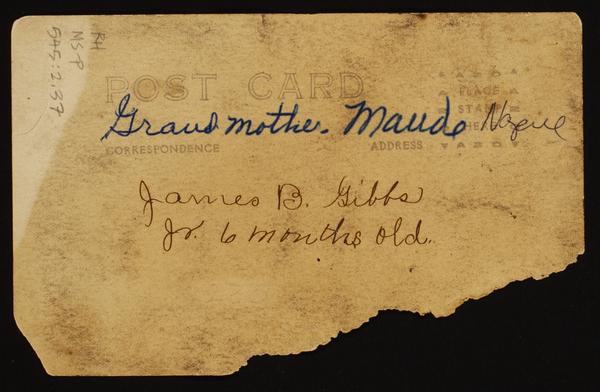 RH
MS-P
SAS:2.37
POST CARD
PLACE
STAMP
HERE
Grandmother Maude
CORRESPONDENCE
ADDRESS
James B. Gibbs
Jr. 6 months old.